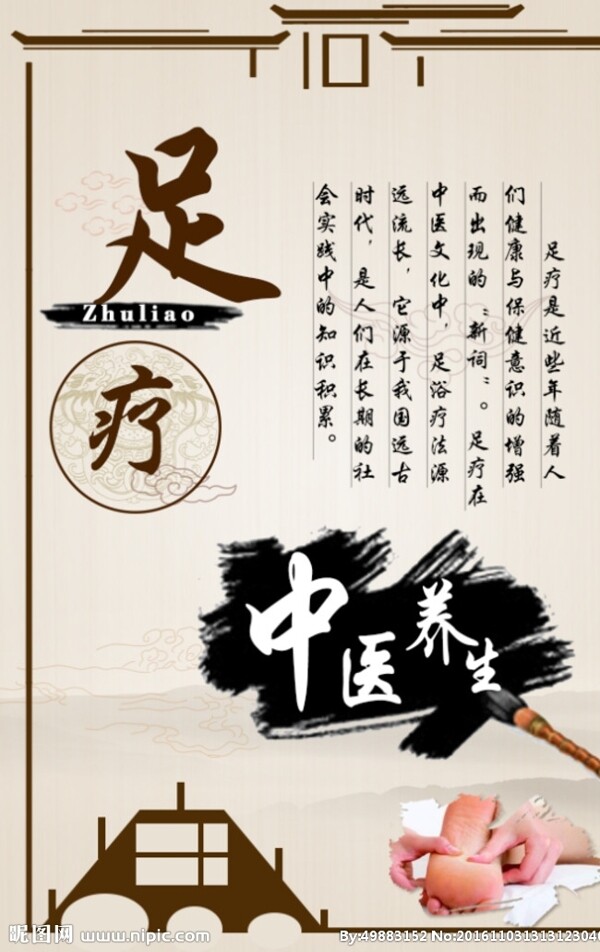 足
Zhuliao
疗
足疗是近些年随着人
们健康与保健意识的增强
而出现的“新词”。足疗在
中医文化中，足浴疗法源
远流长，它源于我国远古
时代，是人们在长期的社
会实践中的知识积累。
中医养生
昵图网 www.nipic.com
By:49883152 No:20161103131312304